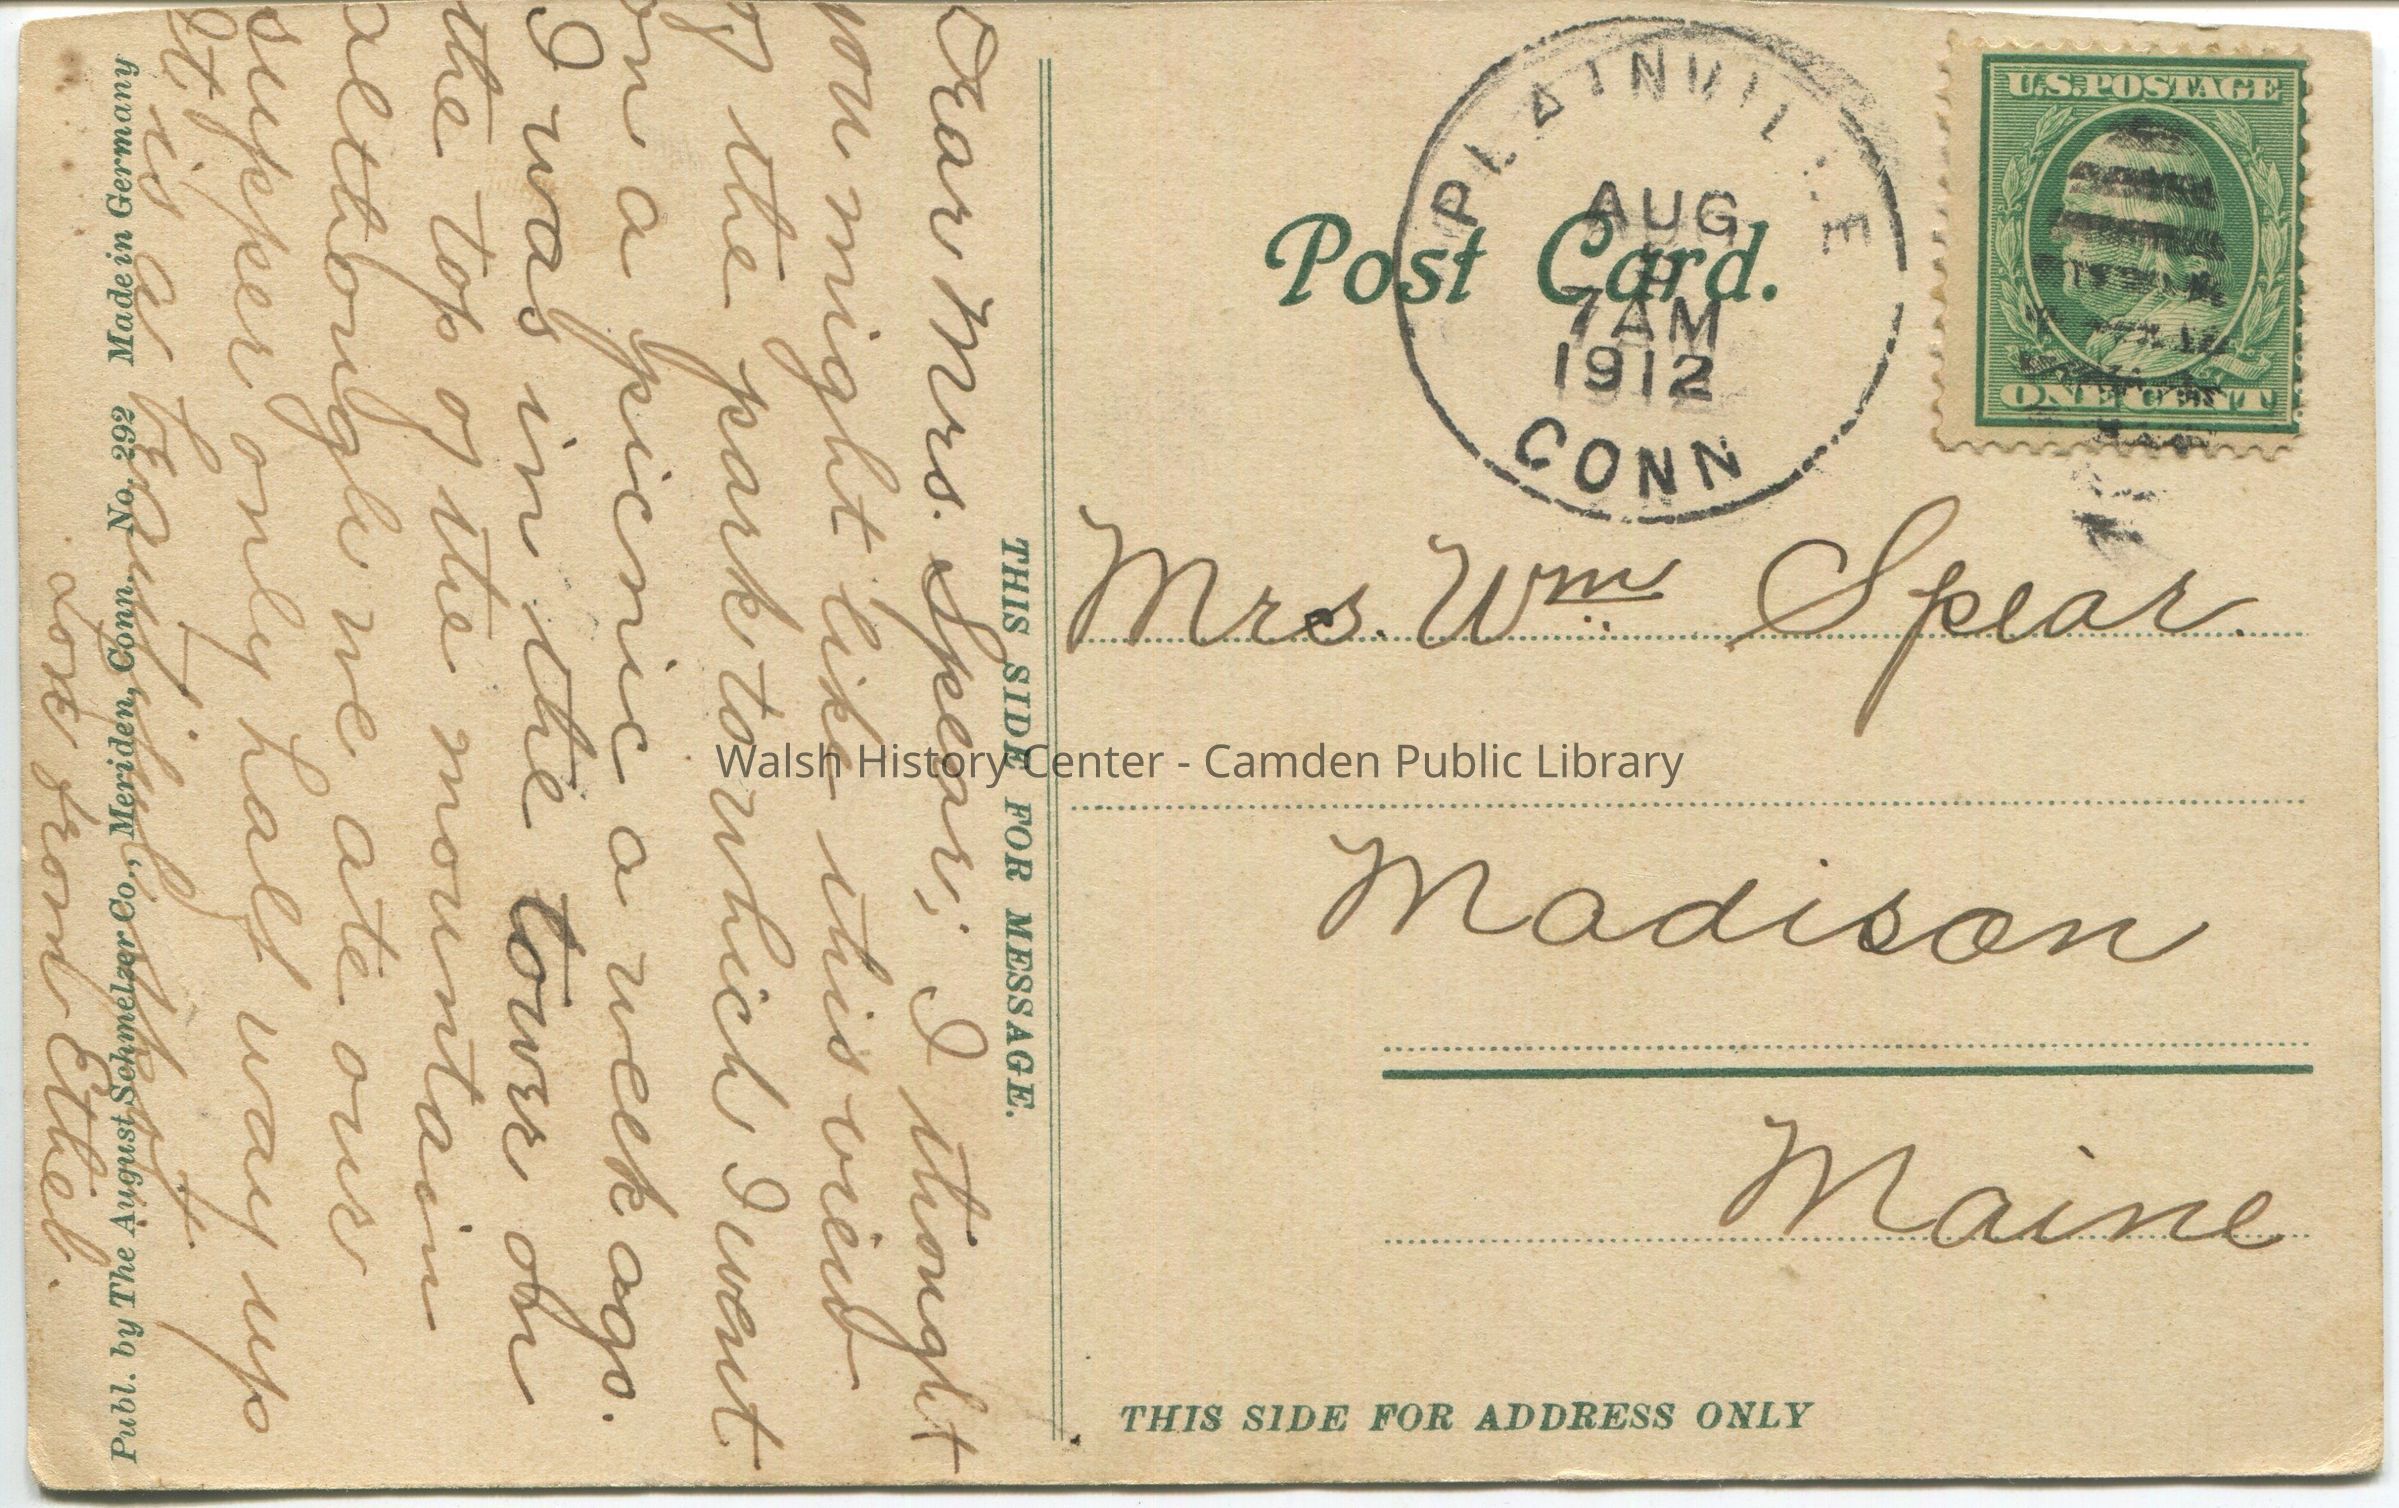 Dear Mrs. Spear; I thought
you might like this view
of the park to which I went
on a picnic a week ago.
I was in the tower on
the top of the mountain
although we ate our
supper only half way up
It is a beautiful spot.
Love from Ethel.
THIS SIDE FOR MESSAGE.
Publ. by The August Schmelzer Co., Meriden, Conn. No. 292 Made in Germany
Post Card.
PLAINVILLE
AUG
7 AM
1912
CONN
U.S. POSTAGE
ONE CENT
Mrs. Wm Spear.
Madison
Maine
THIS SIDE FOR ADDRESS ONLY
Walsh History Center - Camden Public Library